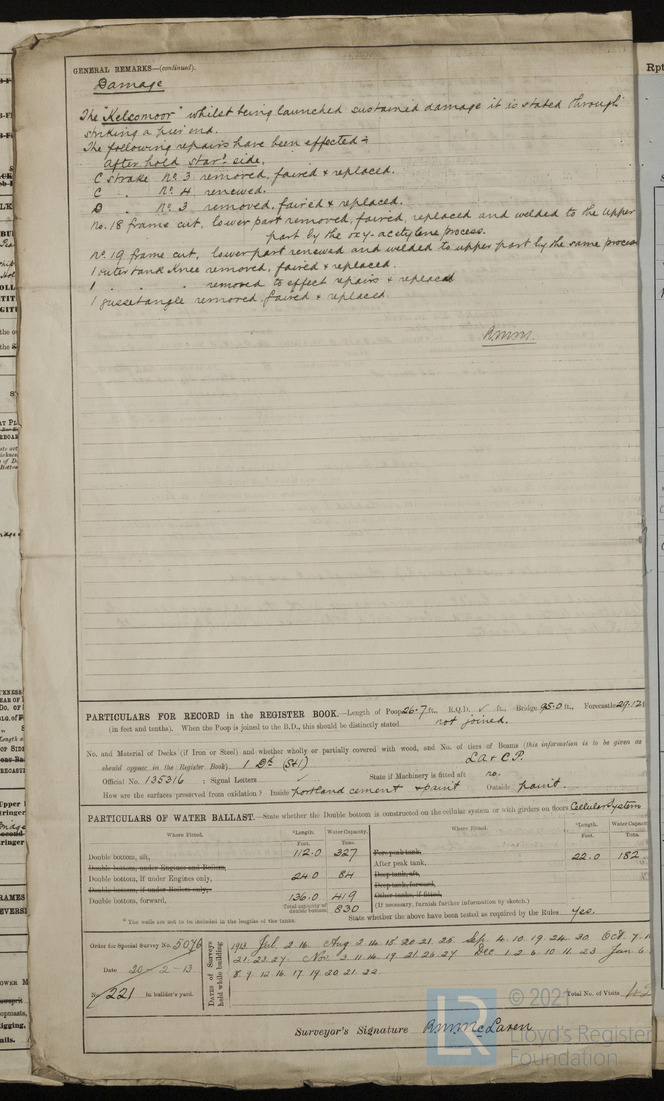 GENERAL REMARKS—(continued).
Damage
The "Kelsomoor" whilst being launched sustained damage it is stated through
striking a pier end.
The following repairs have been effected:-
After hold star^d side.
C strake No. 3 removed, faired & replaced.
C " No. 4 renewed.
D " No. 3 removed, faired & replaced.
No. 18 frame cut, lower part removed, faired, replaced and welded to the upper
part by the oxy-acetylene process.
No. 19 frame cut, lower part renewed and welded to upper part by the same process
1 outer tank knee removed, faired & replaced.
1 " " " removed to effect repairs & replaced
1 gusset angle removed, faired & replaced.
RMM.
PARTICULARS FOR RECORD in the REGISTER BOOK.—Length of Poop 26.7 ft., R.Q.D. ✓ ft., Bridge 95.0 ft., Forecastle 29.12
(in feet and tenths). When the Poop is joined to the B.D., this should be distinctly stated not joined.
No. and Material of Decks (if Iron or Steel) and whether wholly or partially covered with wood, and No. of tiers of Beams (this information is to be given as
should appear in the Register Book). 1 Dk (Stl)
Official No. 135316 ; Signal Letters ✓ State if Machinery is fitted aft no.
How are the surfaces preserved from oxidation? Inside portland cement & paint Outside paint.
PARTICULARS OF WATER BALLAST.—State whether the Double bottom is constructed on the cellular system or with girders on floors Cellular System
Where Fitted. *Length. Water Capacity. Where Fitted. *Length. Water Capacity.
Feet. Tons. Feet. Tons.
Double bottom, aft, 112.0 327 Fore peak tank,
Double bottom, under Engines and Boilers, After peak tank, 22.0 182
Double bottom, if under Engines only, 24.0 84 Deep tank, aft,
Double bottom, if under Boilers only, Deep tank, forward,
Double bottom, forward, 136.0 419 Other tanks, if fitted,
Total capacity of double bottom 830 (If necessary, furnish further information by sketch.)
* The wells are not to be included in the lengths of the tanks. State whether the above have been tested as required by the Rules yes.
Order for Special Survey No. 5076
Date 20-2-13
No. 221 in builder's yard.
DATES of Surveys held while building
1913 Jul. 2. 16. Aug 2. 14. 15. 20. 21. 25. Sep. 4. 10. 19. 24. 30. Oct. 7.
21. 23. 27. Nov. 3. 11. 14. 19. 21. 26. 27. Dec 1. 2. 6. 10. 11. 23 Jan. 6.
8. 9. 12. 16. 17. 19. 20. 21. 22.
Total No. of Visits
Surveyor's Signature RMMcLaren
© 2021
Lloyd's Register
Foundation
LR
Rpt